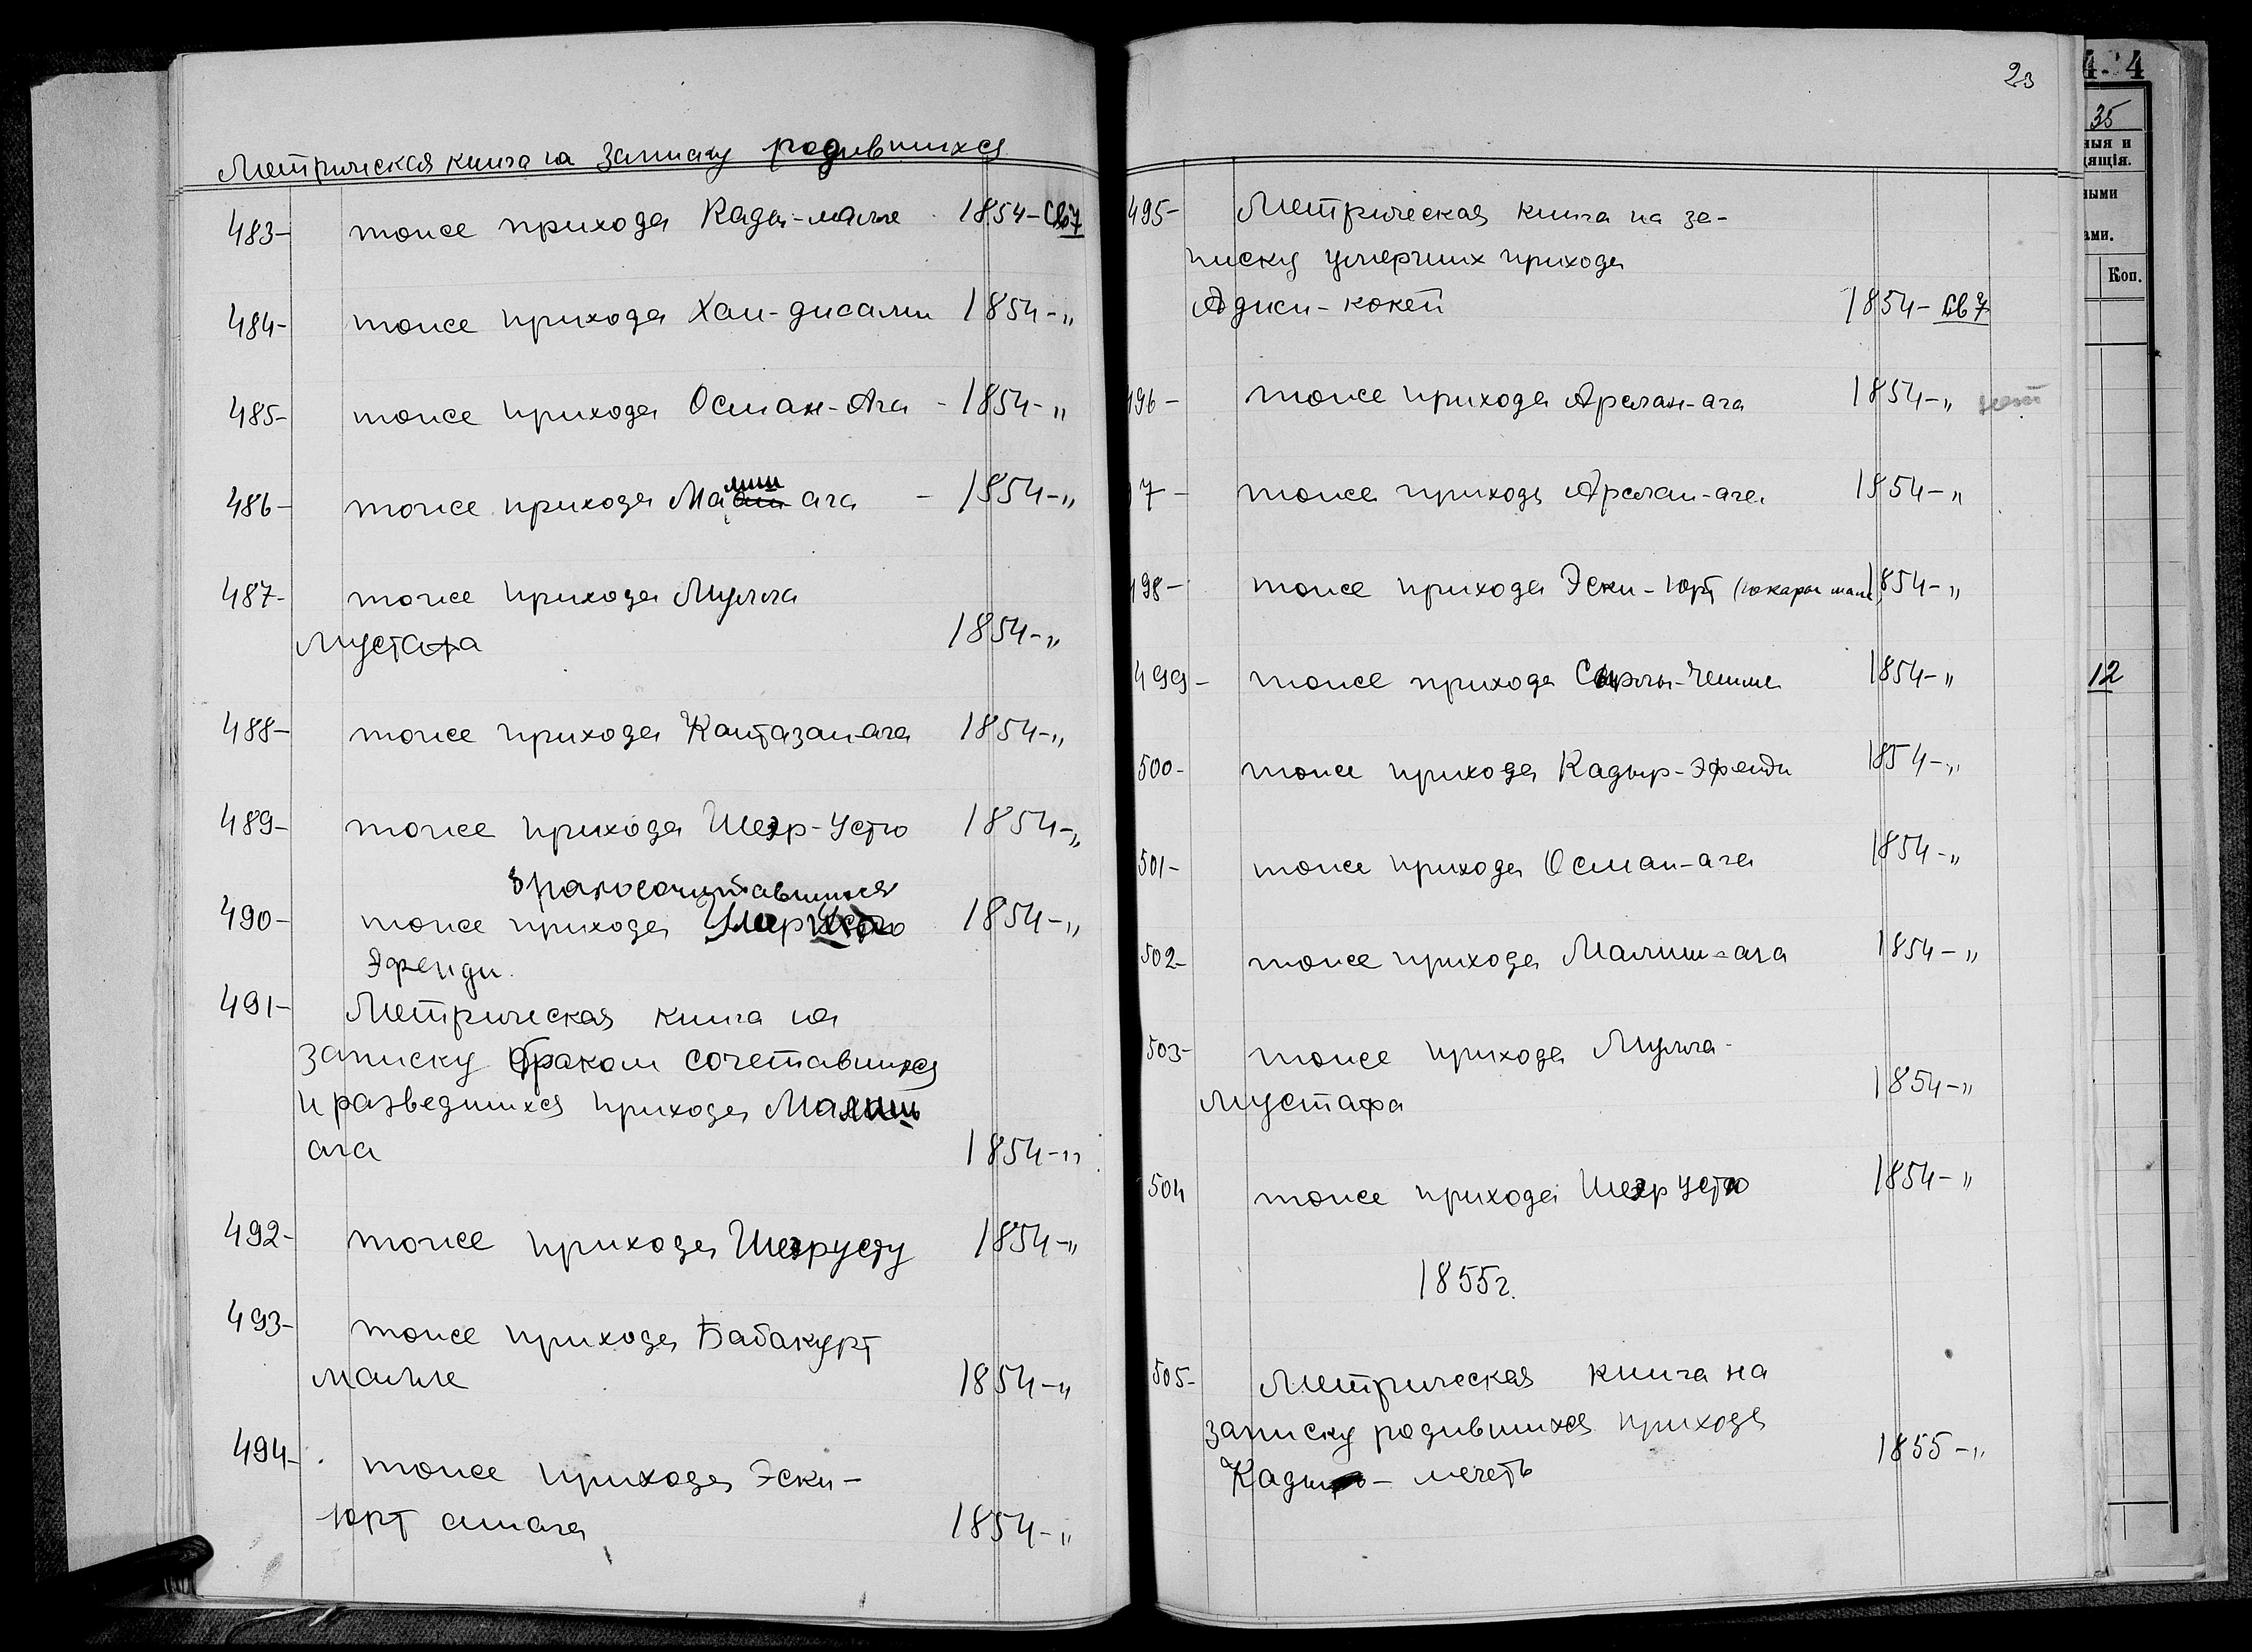 Метрическая книга на записку родившихся
483- тоже прихода Кады-малле 1854- св 7
484- тоже прихода Хан-джами 1854-"
485- тоже прихода Осман-Ага - 1854-"
486- тоже прихода Малиш ага - 1854-"
487- тоже прихода Мулла
Мустафа 1854-"
488- тоже прихода Кантазан-ага 1854-"
489- тоже прихода Шеэр-Устю 1854-"
бракосочитавшихся
490- тоже прихода 1854-"
Эфенди.
491- Метрическая книга на
записку браком сочетавшихся
и разведшихся прихода Малиш
ага 1854-"
492- тоже прихода Шеэрусту 1854-"
493- тоже прихода Бабакурт
малле 1854-"
494- тоже прихода Эски-
Юрт ашага 1854-"
23
495- Метрическая книга на за-
писку умерших прихода
Аджи-кокей 1854- св 7
496- тоже прихода Арслан-ага 1854-" нет
7- тоже прихода Арслан-ага 1854-"
498- тоже прихода Эски-Юрт (юкары мале) 1854-"
499- тоже прихода Сырлы-Чешме 1854-"
500- тоже прихода Кадыр-Эфенди 1854-"
501- тоже прихода Осман-ага 1854-"
502- тоже прихода Малиш-ага 1854-"
503- тоже прихода Мулла-
Мустафа 1854-"
504 тоже прихода Шеэр Устю 1854-"
1855г.
505- Метрическая книга на
записку родившихся прихода
Кады - мечеть 1855-"
4
35
ныя и
дящія.
ными
ами.
Коп.
12